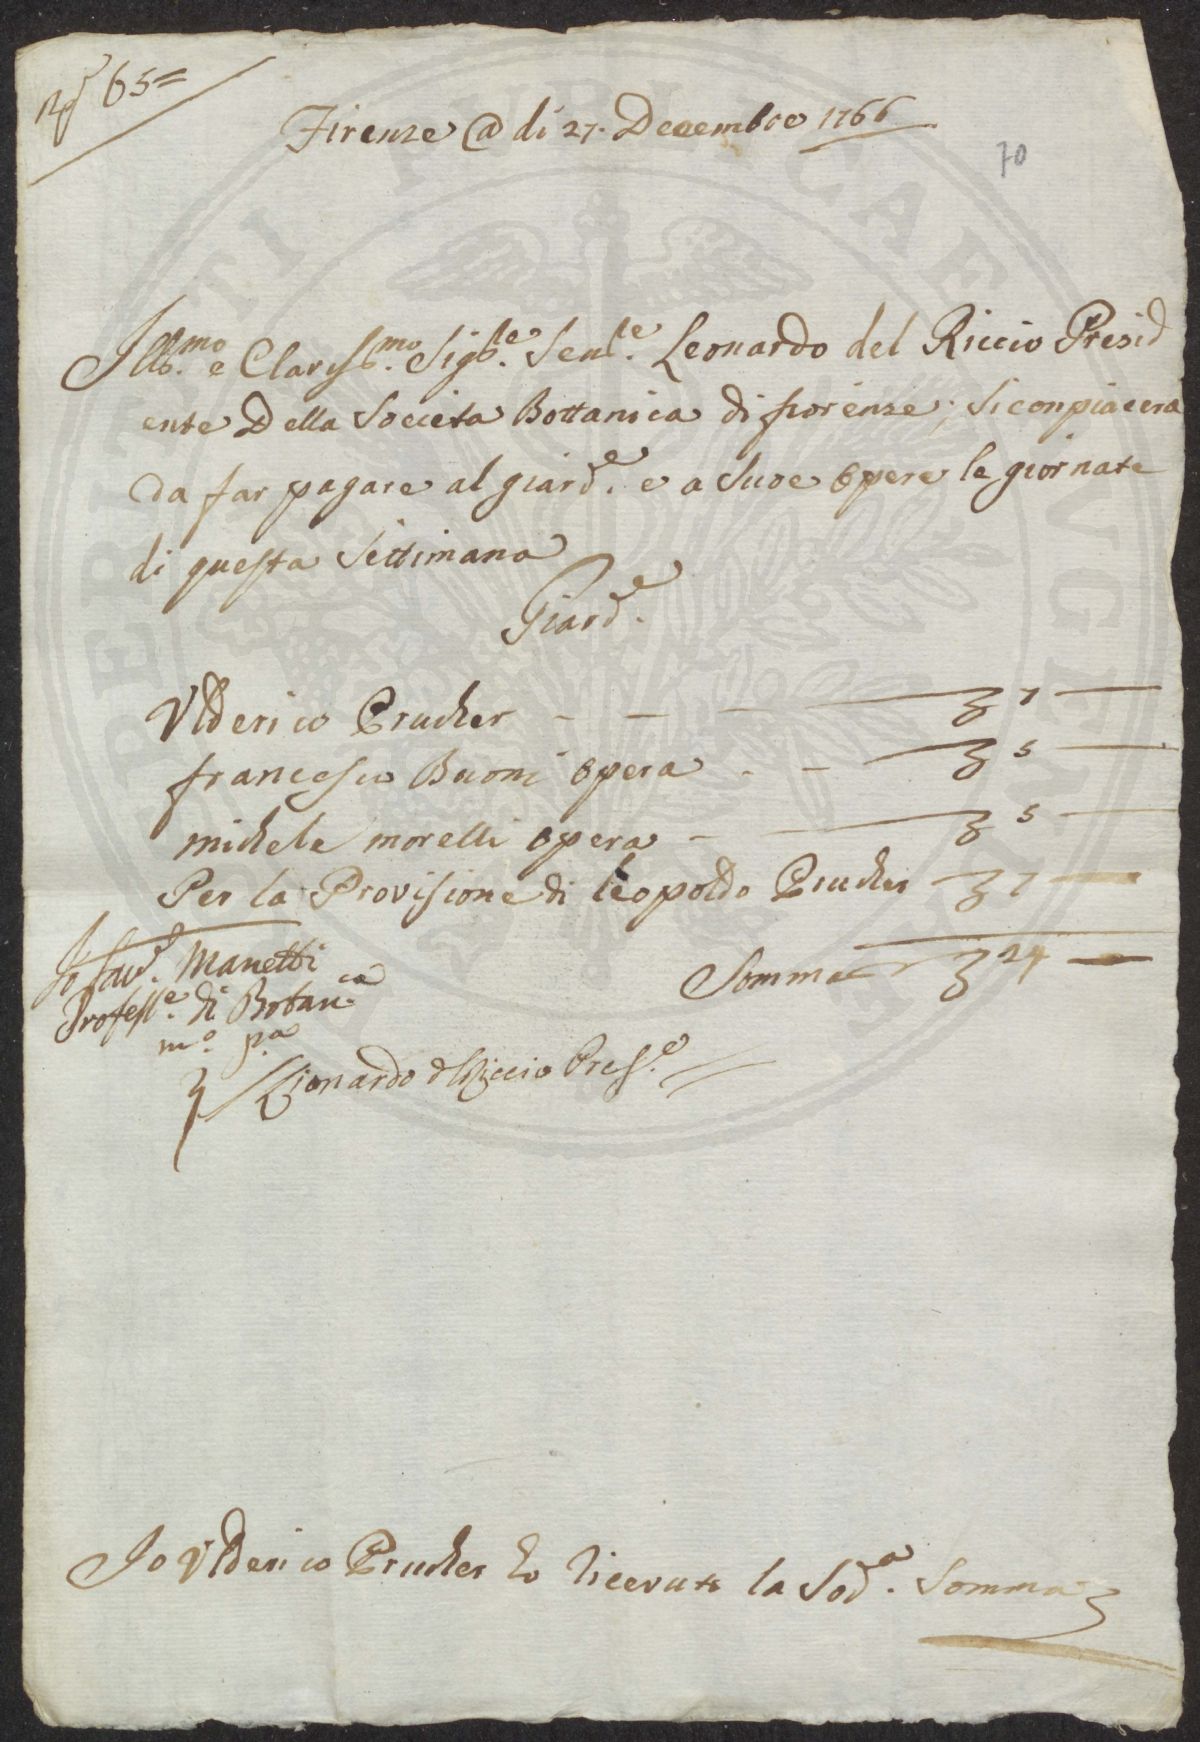 N.º 65=
Firenze @ di 27. Decembre 1766
70
Illb.mo e Clarisb.mo Sigb.e Senb.e Leonardo del Riccio Presid
ente Della Societa Bottanica di fiorenze; Si conpiacera
da far pagare al giard.e e a Suoe opere le giornate
di questa Settimana
Giard.e
Vlderico Prucher - - - 7 —
francesco Buoni opera - - 5 —
michele morelli opera - 5 —
Per la Provisione di leopoldo Prucher 7 —
Somma 24 —
Io Sav. Manetti
Profess.e di Botan.ca
m.o p.a
Lionardo d Riccio Pres.e
Io Vlderico Prucher ho ricevute la Sod.a Somma